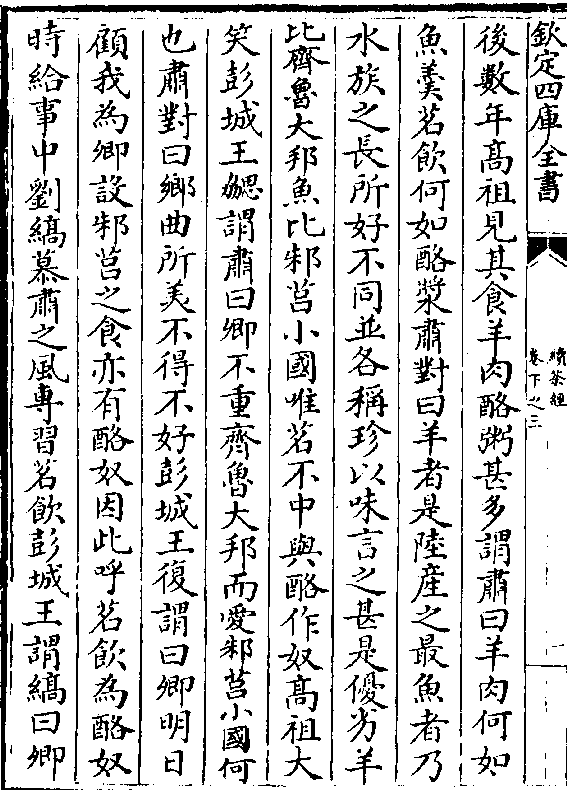 欽定四庫全書
續茶經
卷下之三
後數年髙祖見其食羊肉酪粥甚多謂肅曰羊肉何如
魚羮茗飲何如酪漿肅對曰羊者是陸產之最魚者乃
水族之長所好不同並各稱珍以味言之甚是優劣羊
比齊魯大邦魚比邾莒小國唯茗不中與酪作奴髙祖大
笑彭城王勰謂肅曰卿不重齊魯大邦而愛邾莒小國何
也肅對曰鄉曲所美不得不好彭城王復謂曰卿明日
顧我為卿設邾莒之食亦有酪奴因此呼茗飲為酪奴
時給事中劉縞慕肅之風專習茗飲彭城王謂縞曰卿